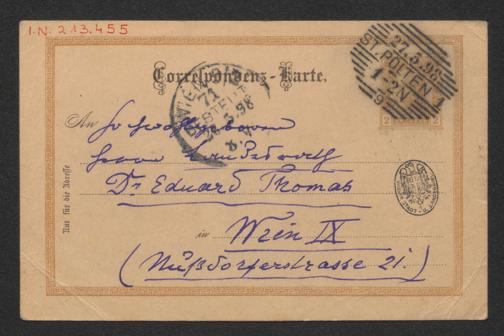 I.N. 213.455
ST. PÖLTEN 1
27.5.98
1-2N
9
WIEN
71
BESTELLT
28.5.98
Correspondenz-Karte.
2
An
Herrn
Dr. Eduard Thomas
in Wien IX
(Nußdorferstrasse 21.)
Nur für die Adresse